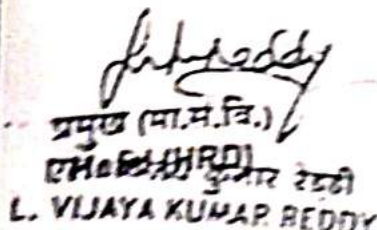 प्रमुख (मा.सं.वि.)
(HRD)
कुमार रेड्डी
L. VIJAYA KUMAR REDDY